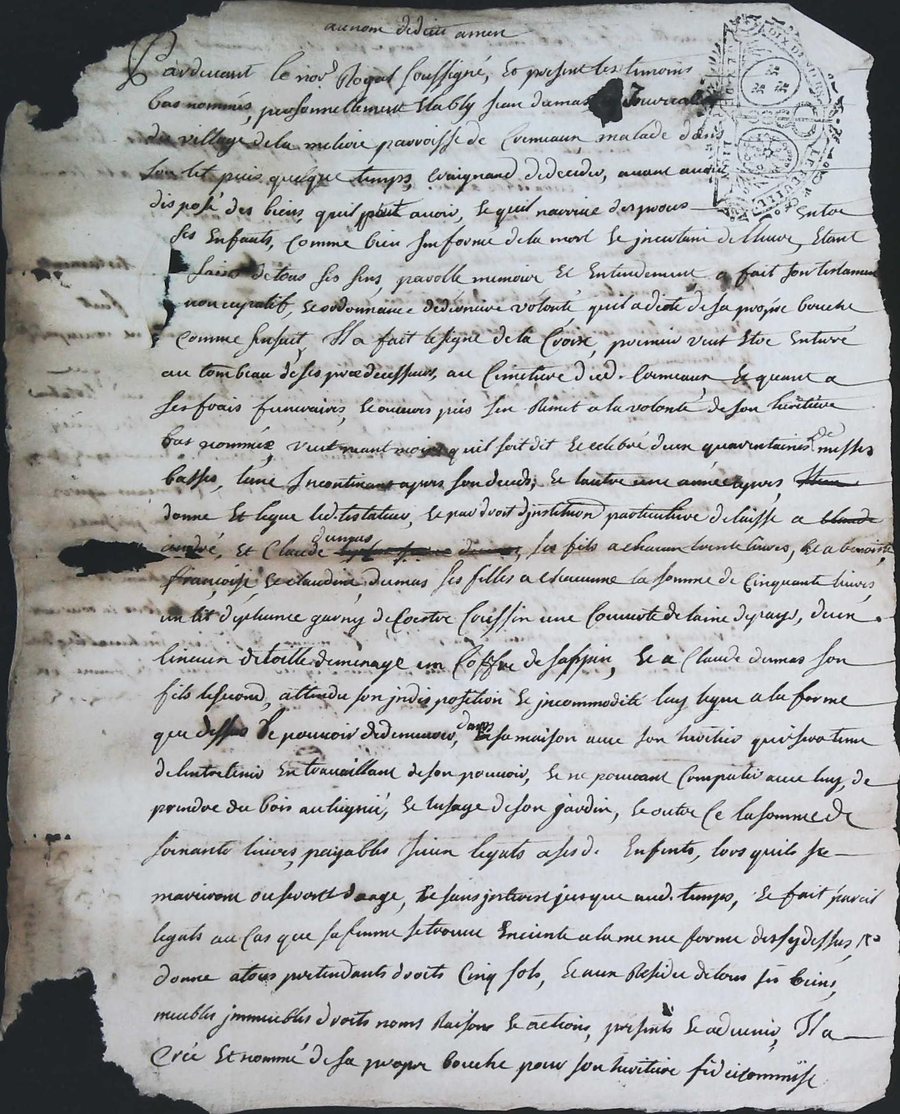 au nom de dieu amen
Pardevant le nore Royal soussigné, et presents les temoins
bas nommés, personnellement Etably Jean dumas
du village de la parroisse de Cormeaux, malade dans
son lit puis quelque temps, Craignand de deceder, avant avoir
disposé des biens, qu'il peut avoir, et qu'il n'arrive des proces Entre
ses Enfants, comme bien Informé de la mort et incertain de l'heure, Etant
saisi de tous ses sens, parolle memoire Et Entendement a fait son testament
noncupatif, et ordonnance de derniere volonté qu'il a dicté de sa propre bouche
Comme s'ensuit, Il a fait le signe de la Croix, premier veut Etre Enterré
au tombeau de ses predecesseurs, au Cimetiere dud. Cormeaux, Et quant a
ses frais funeraires, et œuvres pies s'en Remet a la volonté de son heritiere
bas nommée, veut neant moins qu'il soit dit et celebré deux quarantaines de messes
basses, l'une Incontinent apres son deceds, et l'autre une année apres, Item
donne Et legue led. testateur, et par droit d'institution particuliere delaisse a Claude
André, et Claude dumas ses fils a chacun trente livres, et a benoiste,
françoise, et claudine dumas ses filles a chacune la somme de Cinquante livres,
un lit de plance garny de Coestre Coissin une Couverte de laine de pays, deux
linceux de toille de menage un Coffre de sappin, et a Claude dumas son
fils le second, attendu son indisposition et incommodité luy legue a la forme
que dessus Le pouvoir de demeurer, dans sa maison avec son heritier qui sera tenu
de l'entretenir En travaillant de son pouvoir, et ne pouvant Compatir avec luy, de
prendre du bois au Lignié, et l'usage de son jardin, et outre Ce la somme de
soixante livres, payables Iceux legats a sesd. Enfents, lors qu'ils se
marieront ou seront d'aage, Et sans interest jusque aud. temps, et fait pareil
legats au Cas que sa femme se trouve Enceinte a la meme forme dessy dessus, Et
donne a tous pretendants droits Cinq sols, et au Residu de tous ses biens,
meubles immeubles droits noms Raisons et actions, presents et advenir, Il a
Créé Et nommé de sa propre bouche pour son heritiere fideicommise